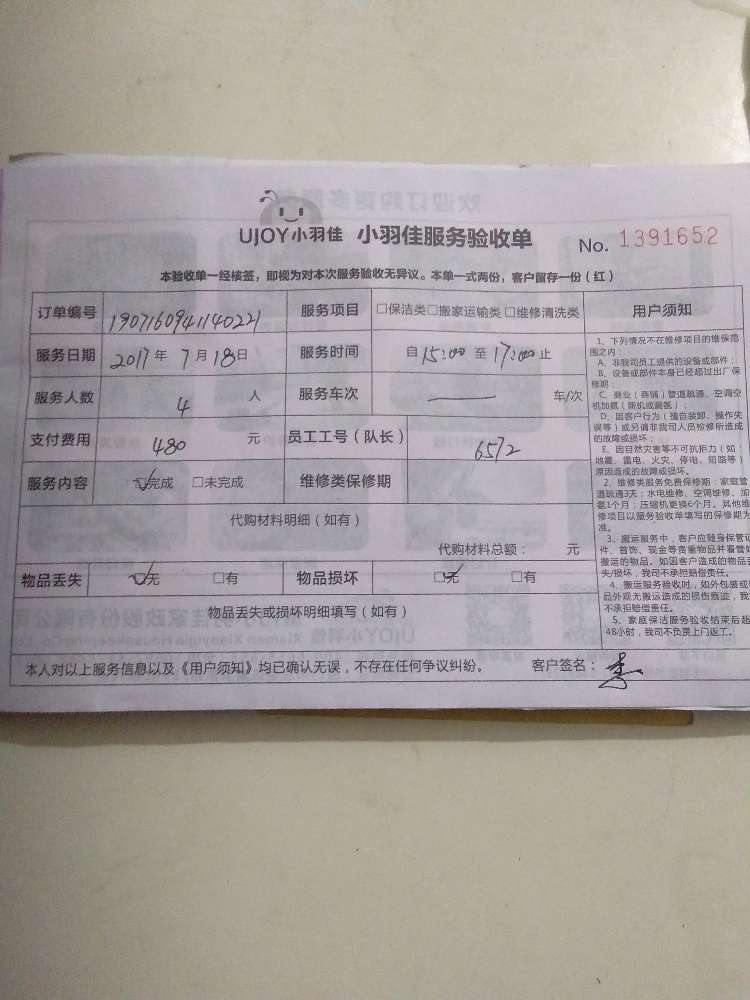 UJOY小羽佳 小羽佳服务验收单 No. 1391652
本验收单一经核签，即视为对本次服务验收无异议。本单一式两份，客户留存一份（红）
订单编号 1907160941140221 服务项目 □保洁类□搬家运输类 □维修清洗类
服务日期 2017年 7月18日 服务时间 自15:00 至 17:00止
服务人数 4 人 服务车次 — 车/次
支付费用 480 元 员工工号（队长） 6572
服务内容 ☑完成 □未完成 维修类保修期
代购材料明细（如有）
代购材料总额： 元
物品丢失 ☑无 □有 物品损坏 ☑无 □有
物品丢失或损坏明细填写（如有）
本人对以上服务信息以及《用户须知》均已确认无误，不存在任何争议纠纷。 客户签名：
用户须知
1、下列情况不在维修项目的维保范
围之内：
A、非我司员工提供的设备或部件；
B、设备或部件本身已经超过出厂保
修期；
C、商业（商铺）管道疏通、空调空
机加氨（新机或漏氨）；
D、因客户行为（擅自装卸、操作失
误等）或另请非我司人员检修所造成
的故障或损坏；
E、因自然灾害等不可抗拒力（如：
地震、雷电、火灾、停电、短路等）
原因造成的故障或损坏。
2、维修类服务免费保修期：家庭管
道疏通3天；水电维修、空调维修、加
氨1个月；压缩机更换6个月。其他维
修项目以服务验收单填写的保修期为
准。
3、搬运服务中，客户应随身保管证
件、首饰、现金等贵重物品并看管好
搬运的物品。如因客户造成的物品丢
失/损坏，我司不承担赔偿责任。
4、搬运服务验收时，如外包装或
品外观无搬运造成的损伤痕迹，我
不承担赔偿责任。
5、家庭保洁服务验收结束后超
48小时，我司不负责上门返工。